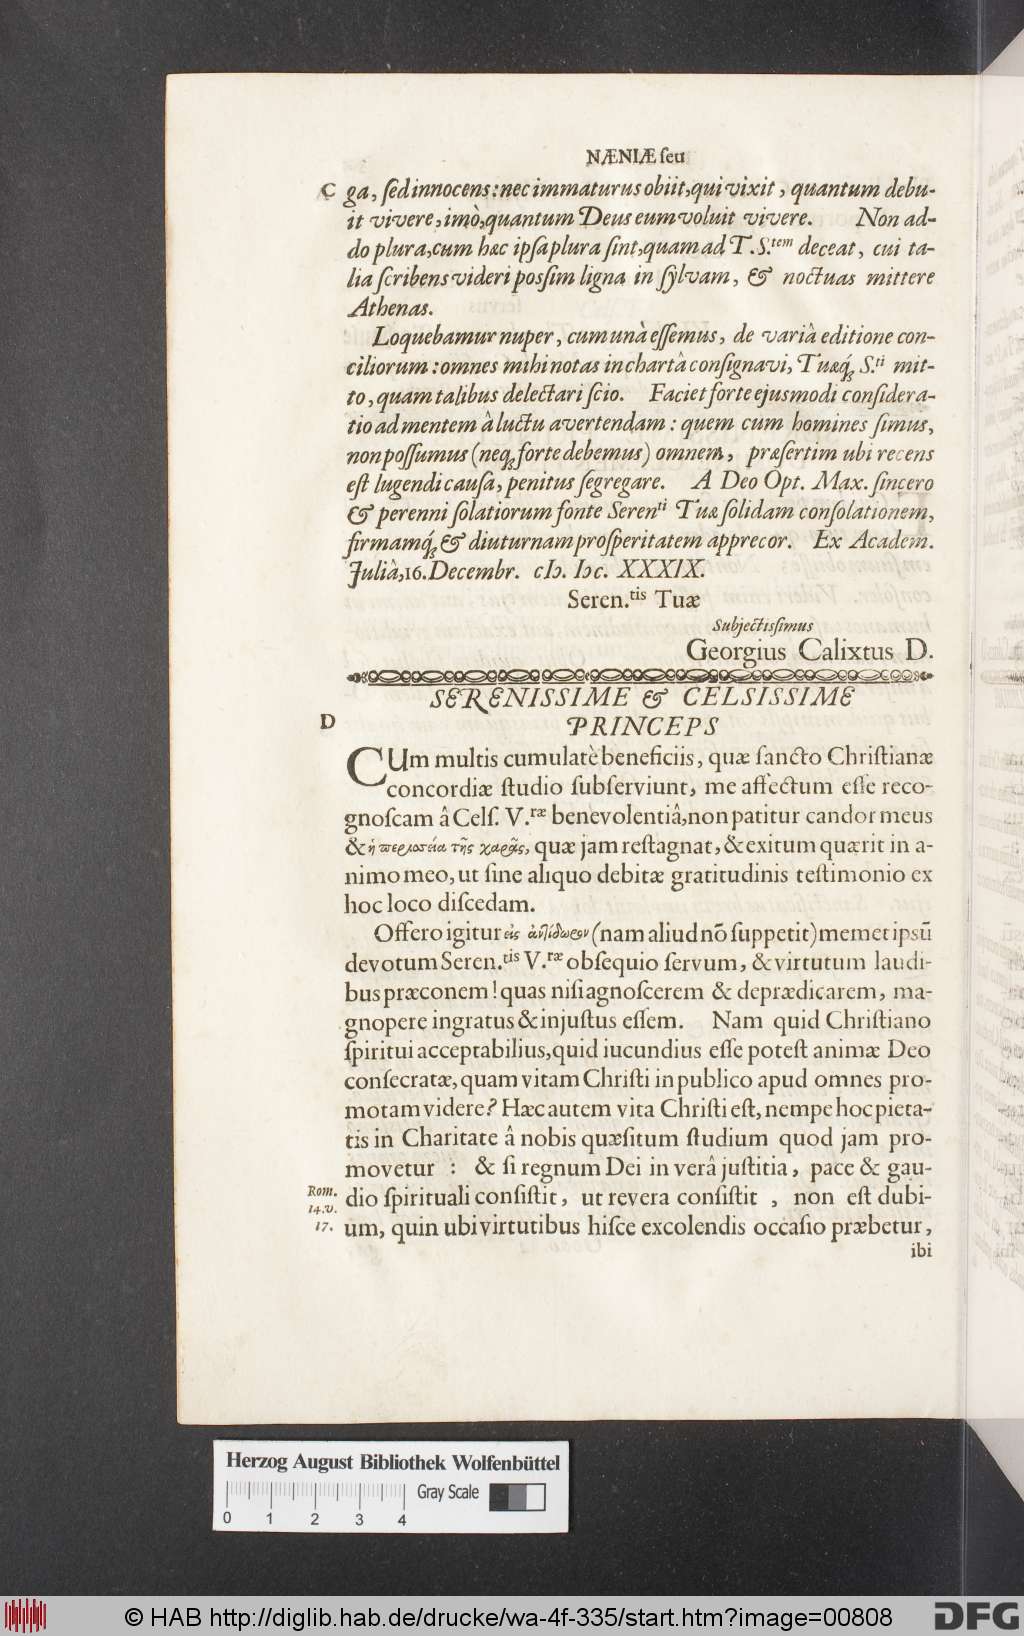 NÆNIÆ ſeu
C ga, ſed innocens: nec immaturus obiit, qui vixit, quantum debu-
it vivere, imò, quantum Deus eum voluit vivere. Non ad-
do plura, cum hæc ipſa plura ſint, quam ad T. S.tem deceat, cui ta-
lia ſcribens videri poſſim ligna in ſylvam, & noctuas mittere
Athenas.
Loquebamur nuper, cum unà eſſemus, de variâ editione con-
ciliorum: omnes mihi notas in chartâ conſignavi, Tuæq́; S.ti mit-
to, quam talibus delectari ſcio. Faciet forte ejusmodi conſidera-
tio ad mentem à luctu avertendam: quem cum homines ſimus,
non poſſumus (neq; forte debemus) omnem, præſertim ubi recens
eſt lugendi cauſa, penitus ſegregare. A Deo Opt. Max. ſincero
& perenni ſolatiorum fonte Serenti Tuæ ſolidam conſolationem,
firmamq́; & diuturnam proſperitatem apprecor. Ex Academ.
Juliâ, 16. Decembr. cIɔ. Iɔc. XXXIX.
Seren.tis Tuæ
Subjectisſimus
Georgius Calixtus D.
SERENISSIME & CELSISSIME
D PRINCEPS
CUm multis cumulatè beneficiis, quæ ſancto Chriſtianæ
concordiæ ſtudio ſubſerviunt, me affectum eſſe reco-
gnoſcam â Celſ. V.ræ benevolentiâ, non patitur candor meus
& ἡ περισσεία τῆς χαρᾶς, quæ jam reſtagnat, & exitum quærit in a-
nimo meo, ut ſine aliquo debitæ gratitudinis teſtimonio ex
hoc loco diſcedam.
Offero igitur εἰς ἀντίδωρον (nam aliud nō ſuppetit) memet ipsū
devotum Seren.tis V.ræ obſequio ſervum, & virtutum laudi-
bus præconem! quas niſi agnoſcerem & deprædicarem, ma-
gnopere ingratus & injuſtus eſſem. Nam quid Chriſtiano
ſpiritui acceptabilius, quid iucundius eſſe poteſt animæ Deo
conſecratæ, quam vitam Chriſti in publico apud omnes pro-
motam videre? Hæc autem vita Chriſti eſt, nempe hoc pieta-
tis in Charitate â nobis quæſitum ſtudium quod jam pro-
movetur : & ſi regnum Dei in verâ juſtitia, pace & gau-
Rom. dio ſpirituali conſiſtit, ut revera conſiſtit , non eſt dubi-
14. v.
17. um, quin ubi virtutibus hiſce excolendis occaſio præbetur,
ibi
Herzog August Bibliothek Wolfenbüttel
Gray Scale
0 1 2 3 4
© HAB http://diglib.hab.de/drucke/wa-4f-335/start.htm?image=00808
DFG